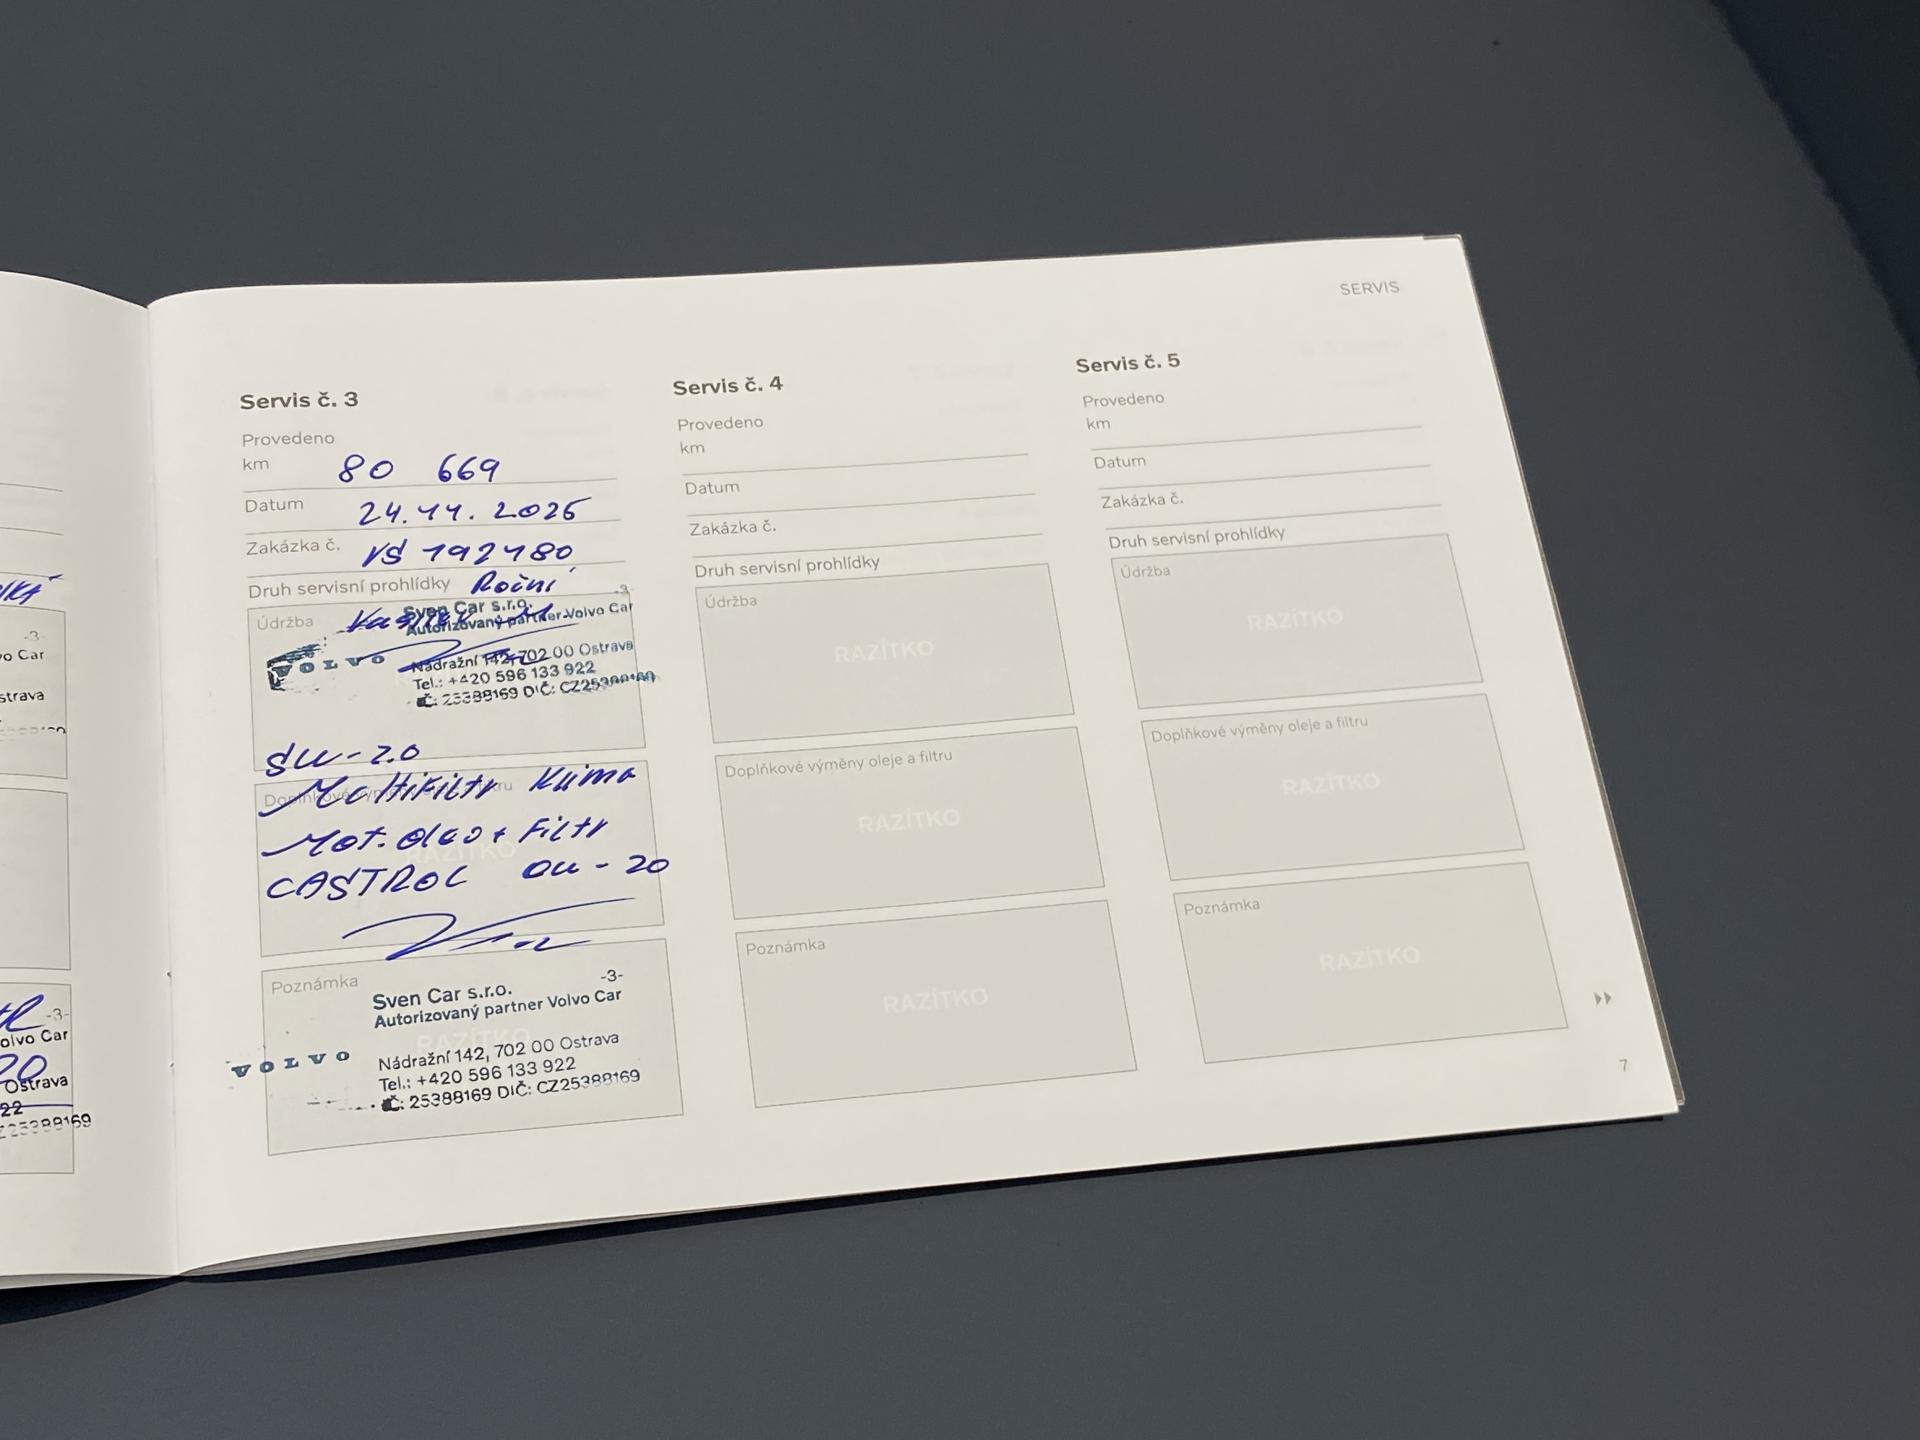 SERVIS
Servis č. 3
Provedeno
km 80 669
Datum 24.11.2025
Zakázka č. VS 192180
Druh servisní prohlídky Roční
Údržba
Sven Car s.r.o. -3-
Autorizovaný partner Volvo Car
VOLVO
Nádražní 142, 702 00 Ostrava
Tel.: +420 596 133 922
IČ: 25388169 DIČ: CZ25388169
SW-2.0
Doplňkové výměny oleje a filtru
Multifiltr Klima
Mot. olej + Filtr
RAZÍTKO
CASTROL 0W-20
Poznámka
Sven Car s.r.o. -3-
Autorizovaný partner Volvo Car
RAZÍTKO
VOLVO
Nádražní 142, 702 00 Ostrava
Tel.: +420 596 133 922
IČ: 25388169 DIČ: CZ25388169
Servis č. 4
Provedeno
km
Datum
Zakázka č.
Druh servisní prohlídky
Údržba
RAZÍTKO
Doplňkové výměny oleje a filtru
RAZÍTKO
Poznámka
RAZÍTKO
Servis č. 5
Provedeno
km
Datum
Zakázka č.
Druh servisní prohlídky
Údržba
RAZÍTKO
Doplňkové výměny oleje a filtru
RAZÍTKO
Poznámka
RAZÍTKO
7
-3-
o Car
strava
-3-
olvo Car
20
Ostrava
22
25388169